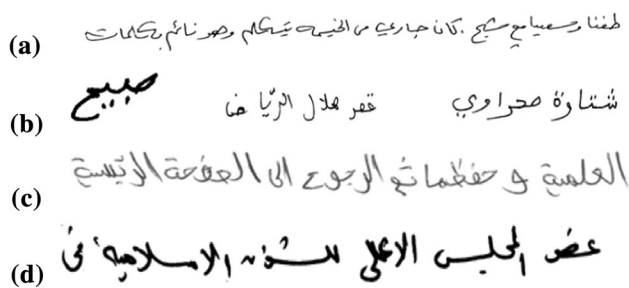 (a) طفنا وسعينا مع شيخ . كان جاري من الخيمة يتكلم وهو نائم بكلمات
(b) شتارة صحراوي قصر هلال الرياض صبيح
(c) العلمية و حفظها ثم الرجوع الى الصفحة الرئيسية
(d) عضو المجلس الاعلى للشؤون الاسلامية في